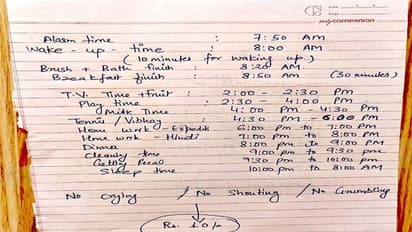 mycompanion
Alarm time : 7:50 AM
Wake - up - time : 8:00 AM
(10 minutes for waking up)
Brush + Bath finish : 8:20 AM
Breakfast finish : 8:50 AM (30 minutes)
T.V. Time + fruit : 2:00 - 2:30 PM
Play time : 2:30 - 4:00 PM
Milk Time : 4:00 PM - 4:30 PM
Tennis / : 4:30 PM - 6:00 PM
Home work - : 6:00 PM to 7:00 PM
Home work - Hindi : 7:00 PM to 8:00 PM
Dinner : 8:00 PM to 9:00 PM
Cleaning time : 9:00 PM to 9:30 PM
: 9:30 PM to 10:00 PM
Sleep time : 10:00 PM to 8:00 AM
No Crying / No Shouting / No Grumbling
Rs. 10/-